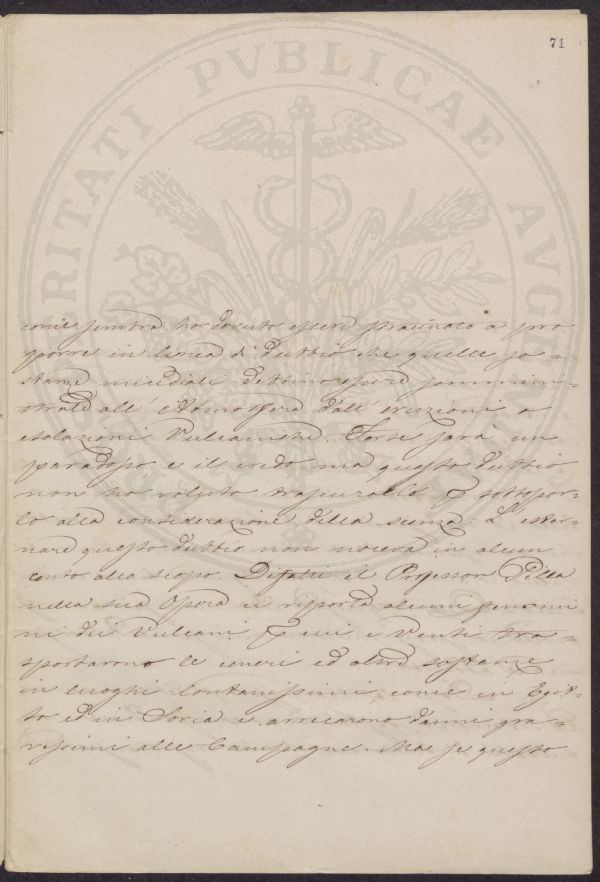 71
PROSPERITATI PVBLICAE AVGENDAE
come sembra ho dovuto essere strascinato a pro
porre in linea di dubbio che quelle so-
stanze micidiali debbino essere sommini-
strate all' Atmosfera dall' eruzioni o
esalazioni Vulcaniche. Forse sarà un
paradosso e il credo ma questo dubbio
non ho voluto trascurarlo e sottopor-
lo alla considerazione della scienza. L'ester-
nare questo dubbio non noceva in alcun
conto allo scopo. Difatti il Professor Pilla
nella sua Opera ci riporta alcuni fenome-
ni dei Vulcani e cui i Venti tra-
sportarono le ceneri ed altre sostanze
in luoghi lontanissimi come in Egit-
to ed in Soria e arrecarono danni gra-
vissimi alle Campagne. Ma se questo